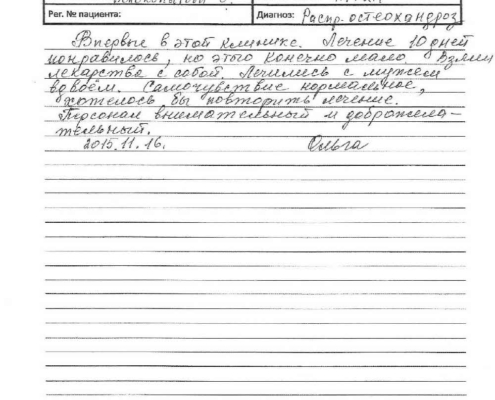 Рег. № пациента: Диагноз: Распр. остеохандроз
Впервые в этой клинике. Лечение 10 дней
понравилось, но этого конечно мало. Взяли
лекарства с собой. Лечились с мужем
вдвоём. Самочувствие нормальное,
хотелось бы повторить лечение.
Персонал внимательный и доброжела-
тельный.
2015.11.16. Ольга